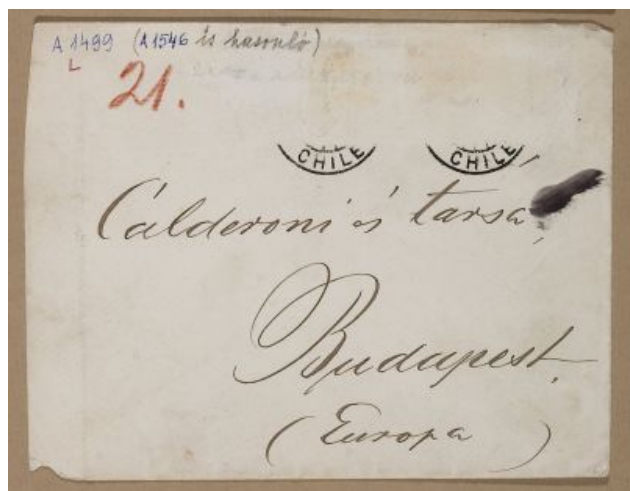 A 1499 (A 1546 is hasonló)
L
21.
CHILE CHILE
Calderoni és társa,
Budapest.
(Europa)